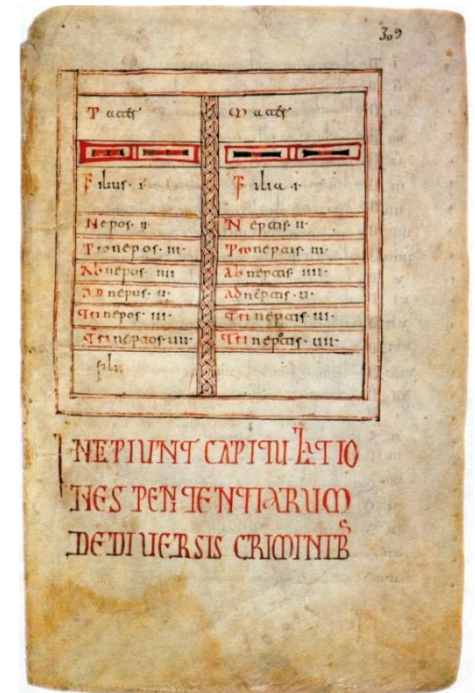 309
Pater Mater
Filius · i · Filia · i ·
Nepos · ii · Neptis · ii ·
Pronepos · iii · Proneptis · iii ·
Abnepos · iiii Abneptis · iiii ·
Adnepus · u · Adneptis · u ·
Trinepos · ui · Trineptis · ui ·
Trinepotis · uii · Trineptis · uii ·
filii
INCIPIUNT CAPITULATIO
NES PENITENTIARUM
DE DIUERSIS CRIMINIBS